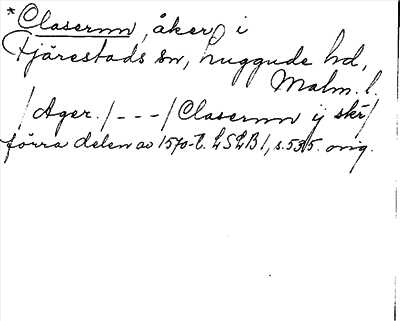 *Clasermn, åker, i
Fjärestads sn, Luggude hd,
Malm. l.
/Ager./---/Clasermn ij skr/
förra delen av 1570-t. LSLB 1, s. 535. orig.